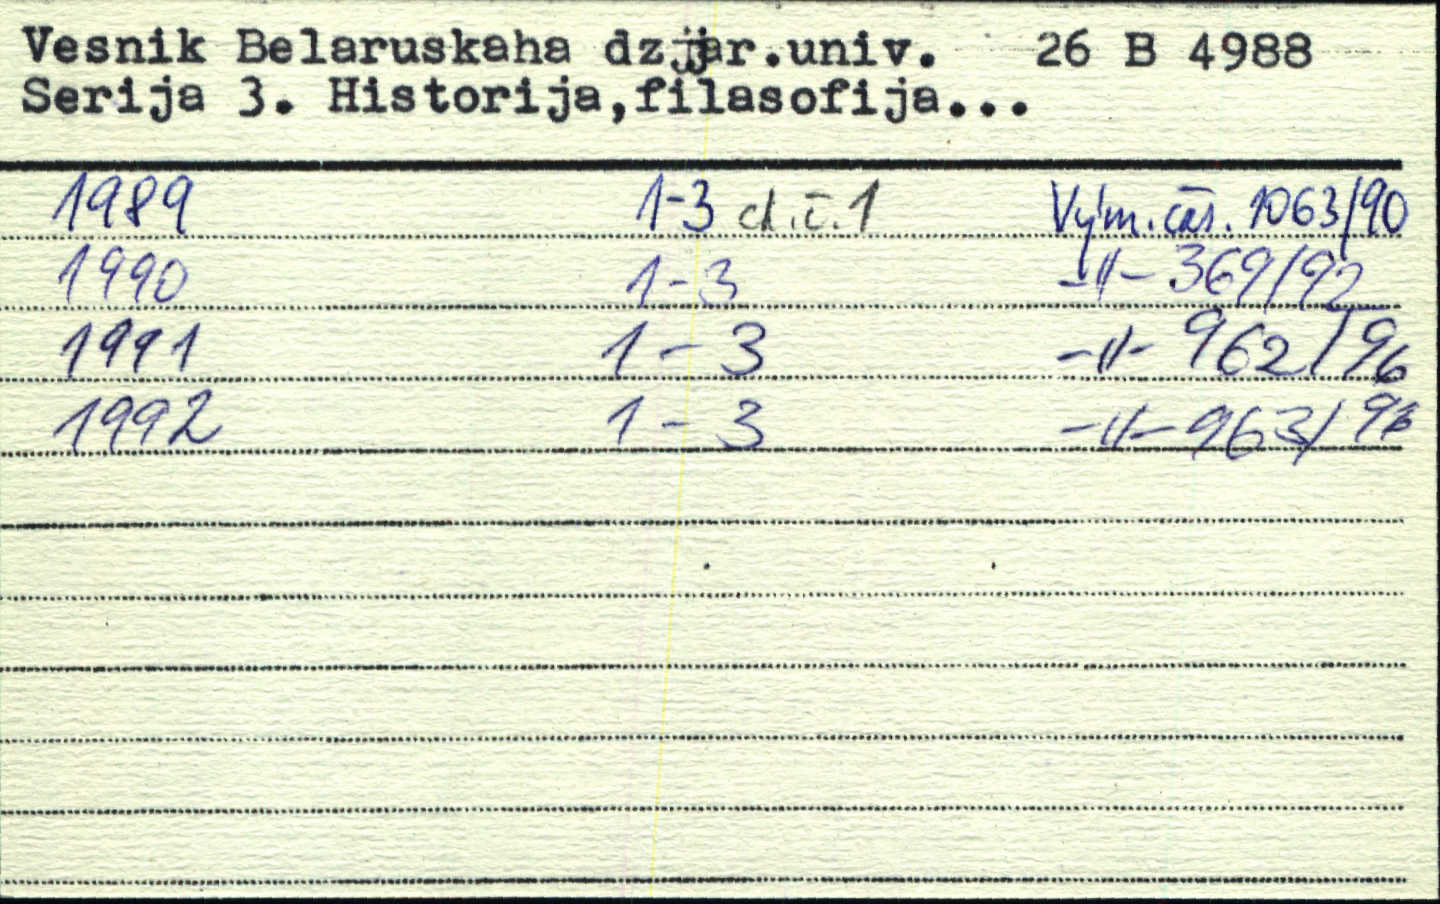 Vesnik Belaruskaha dzjar.univ. 26 B 4988
Serija 3. Historija,filasofija...
1989 1-3 ch.č.1 Vým.čas. 1063/90
1990 1-3 -"- 369/92
1991 1-3 -"- 962/96
1992 1-3 -"- 963/96